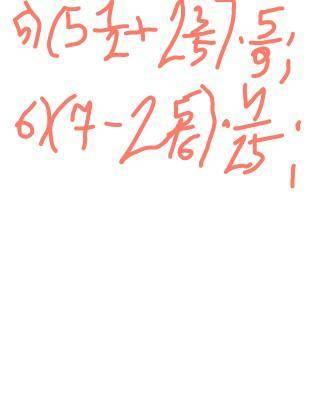 5) (5 1/2 + 2 3/5) · 5/9;
6) (7 - 2 5/6) · 4/25;